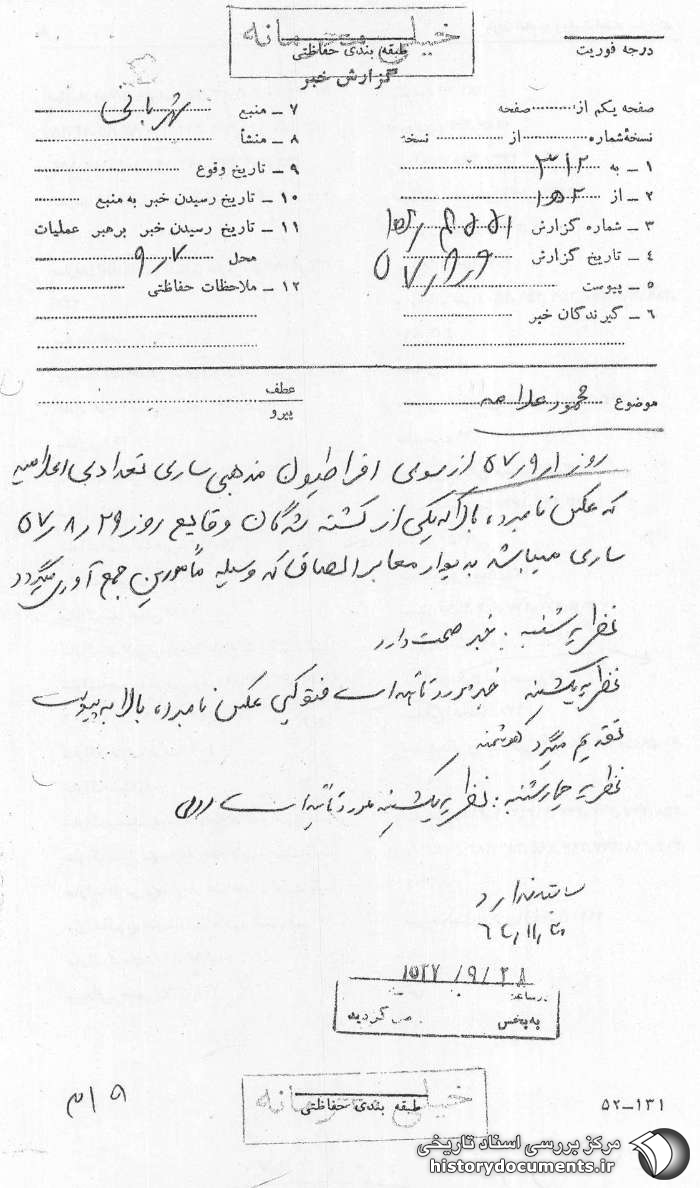 خیلی محرمانه
طبقه بندی حفاظتی
گزارش خبر
درجه فوریت
صفحه یکم از صفحه
نسخهٔ شماره از نسخه
۱ – به ۳۱۲
۲ – از
۳ – شماره گزارش
۴ – تاریخ گزارش
۵ – پیوست
۶ – گیرندگان خبر
۷ – منبع شهربانی
۸ – منشأ
۹ – تاریخ وقوع
۱۰ – تاریخ رسیدن خبر به منبع
۱۱ – تاریخ رسیدن خبر برهبر عملیات
محل ۹٫۷
۱۲ – ملاحظات حفاظتی
موضوع محمود علامه
عطف
پیرو
روز ۵۷٫۹٫۱ از سوی افراطیون مذهبی ساری تعدادی اعلامیه
که عکس نامبرده بالا که یکی از کشته شدگان وقایع روز ۲۹٫۸٫۵۷
ساری میباشد به دیوار معابر الصاق که وسیله مأمورین جمع آوری میگردد
نظریه شنبه : خبر صحت دارد
نظریه یکشنبه خبر مورد تائید است فتوکپی عکس نامبرده بالا به پیوست
تقدیم میگردد هوشمند
نظریه چهارشنبه : نظریه یکشنبه مورد تائید است
سابقه ندارد
۱۵۲۷ /۹/۲۸
در ساعت
به بخش می گردید
خیلی محرمانه
طبقه بندی حفاظتی
۵۲–۱۳۱
مرکز بررسی اسناد تاریخی
historydocuments.ir